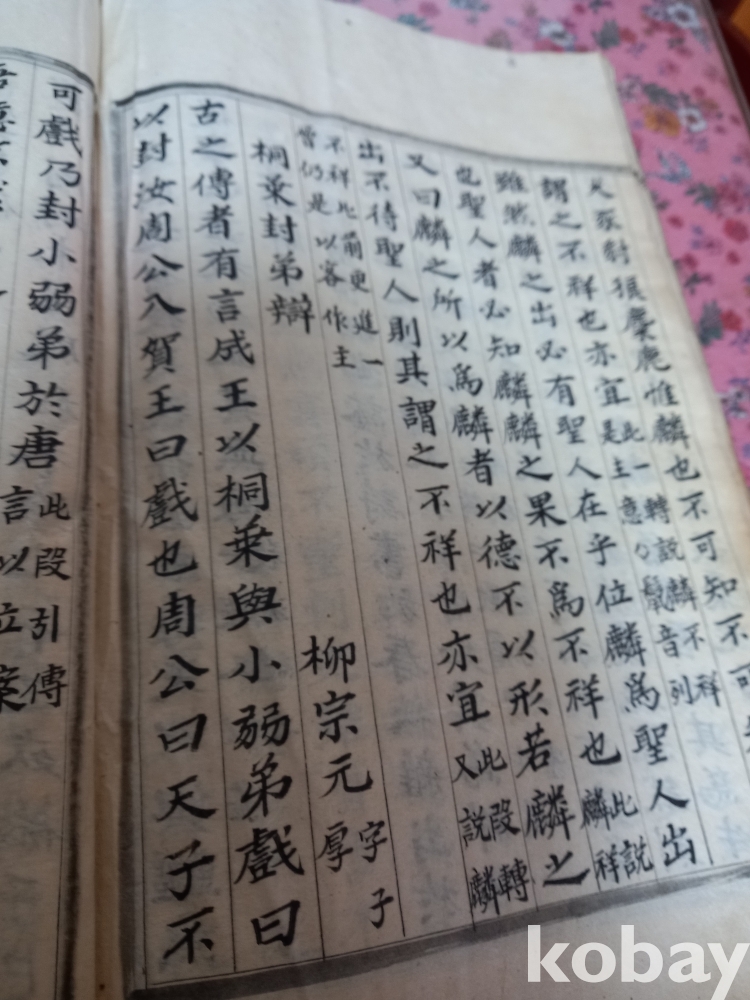 犬豕豺狼麋鹿惟麟也不可知不可
謂之不祥也亦宜
此一轉說麟不祥
是主意〇鬣音列
雖然麟之出必有聖人在乎位麟爲聖人出
也聖人者必知麟麟之果不爲不祥也
此說
麟祥
又曰麟之所以爲麟者以德不以形若麟之
出不待聖人則其謂之不祥也亦宜
此段轉
又說麟
不祥此前更進一
曾仍是以客作主
桐葉封弟辯 柳宗元
字子
厚
古之傳者有言成王以桐葉與小弱弟戲曰
以封汝周公入賀王曰戲也周公曰天子不
可戲乃封小弱弟於唐
此段引傳
言以立案
吾意
kobay